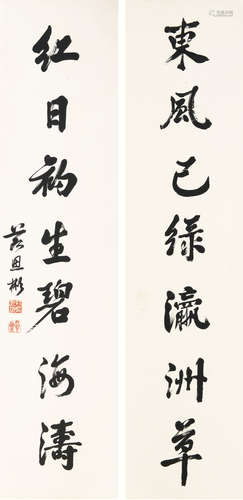 東風已綠瀛洲草
紅日初生碧海濤
黃恩彬